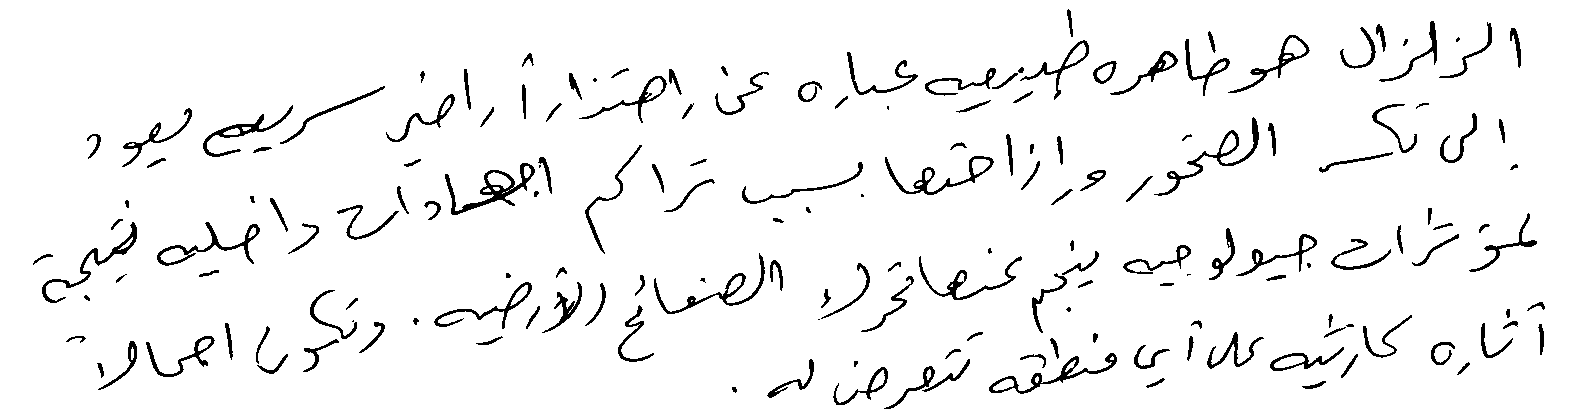 الزلزال هو ظاهره طبيعيه عباره عن إهتزاز أراضي سريع يعود
إلى تكسر الصخور وإزاحتها بسبب تراكم اجهادات داخليه نتيجة
لمؤثرات جيولوجيه ينجم عنها تحرك الصفائح الأرضيه. وتكون اجمالاً
آثاره كارثيه على أي منطقه تتعرض له.